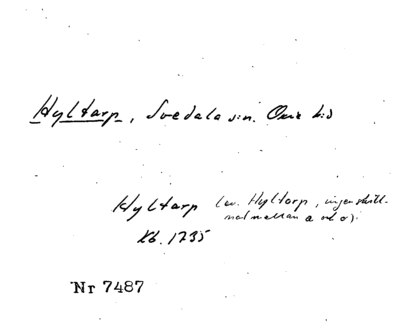 Hyltarp, Svedala sn. Oxie hd
Hyltarp (ev. Hyltorp, ingen skill-
nad mellan a och o).
Kb. 1735
Nr 7487